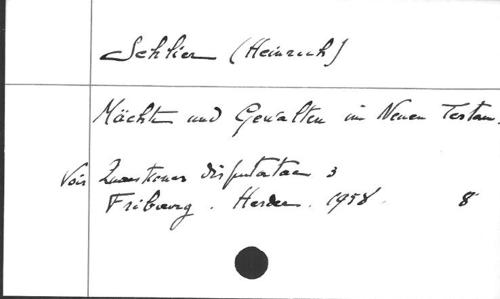 Schlier (Heinrich)
Mächte und Gewalten im Neuen Testam.
Voir Quaestiones disputatae 3
Fribourg . Herder . 1958 . 8